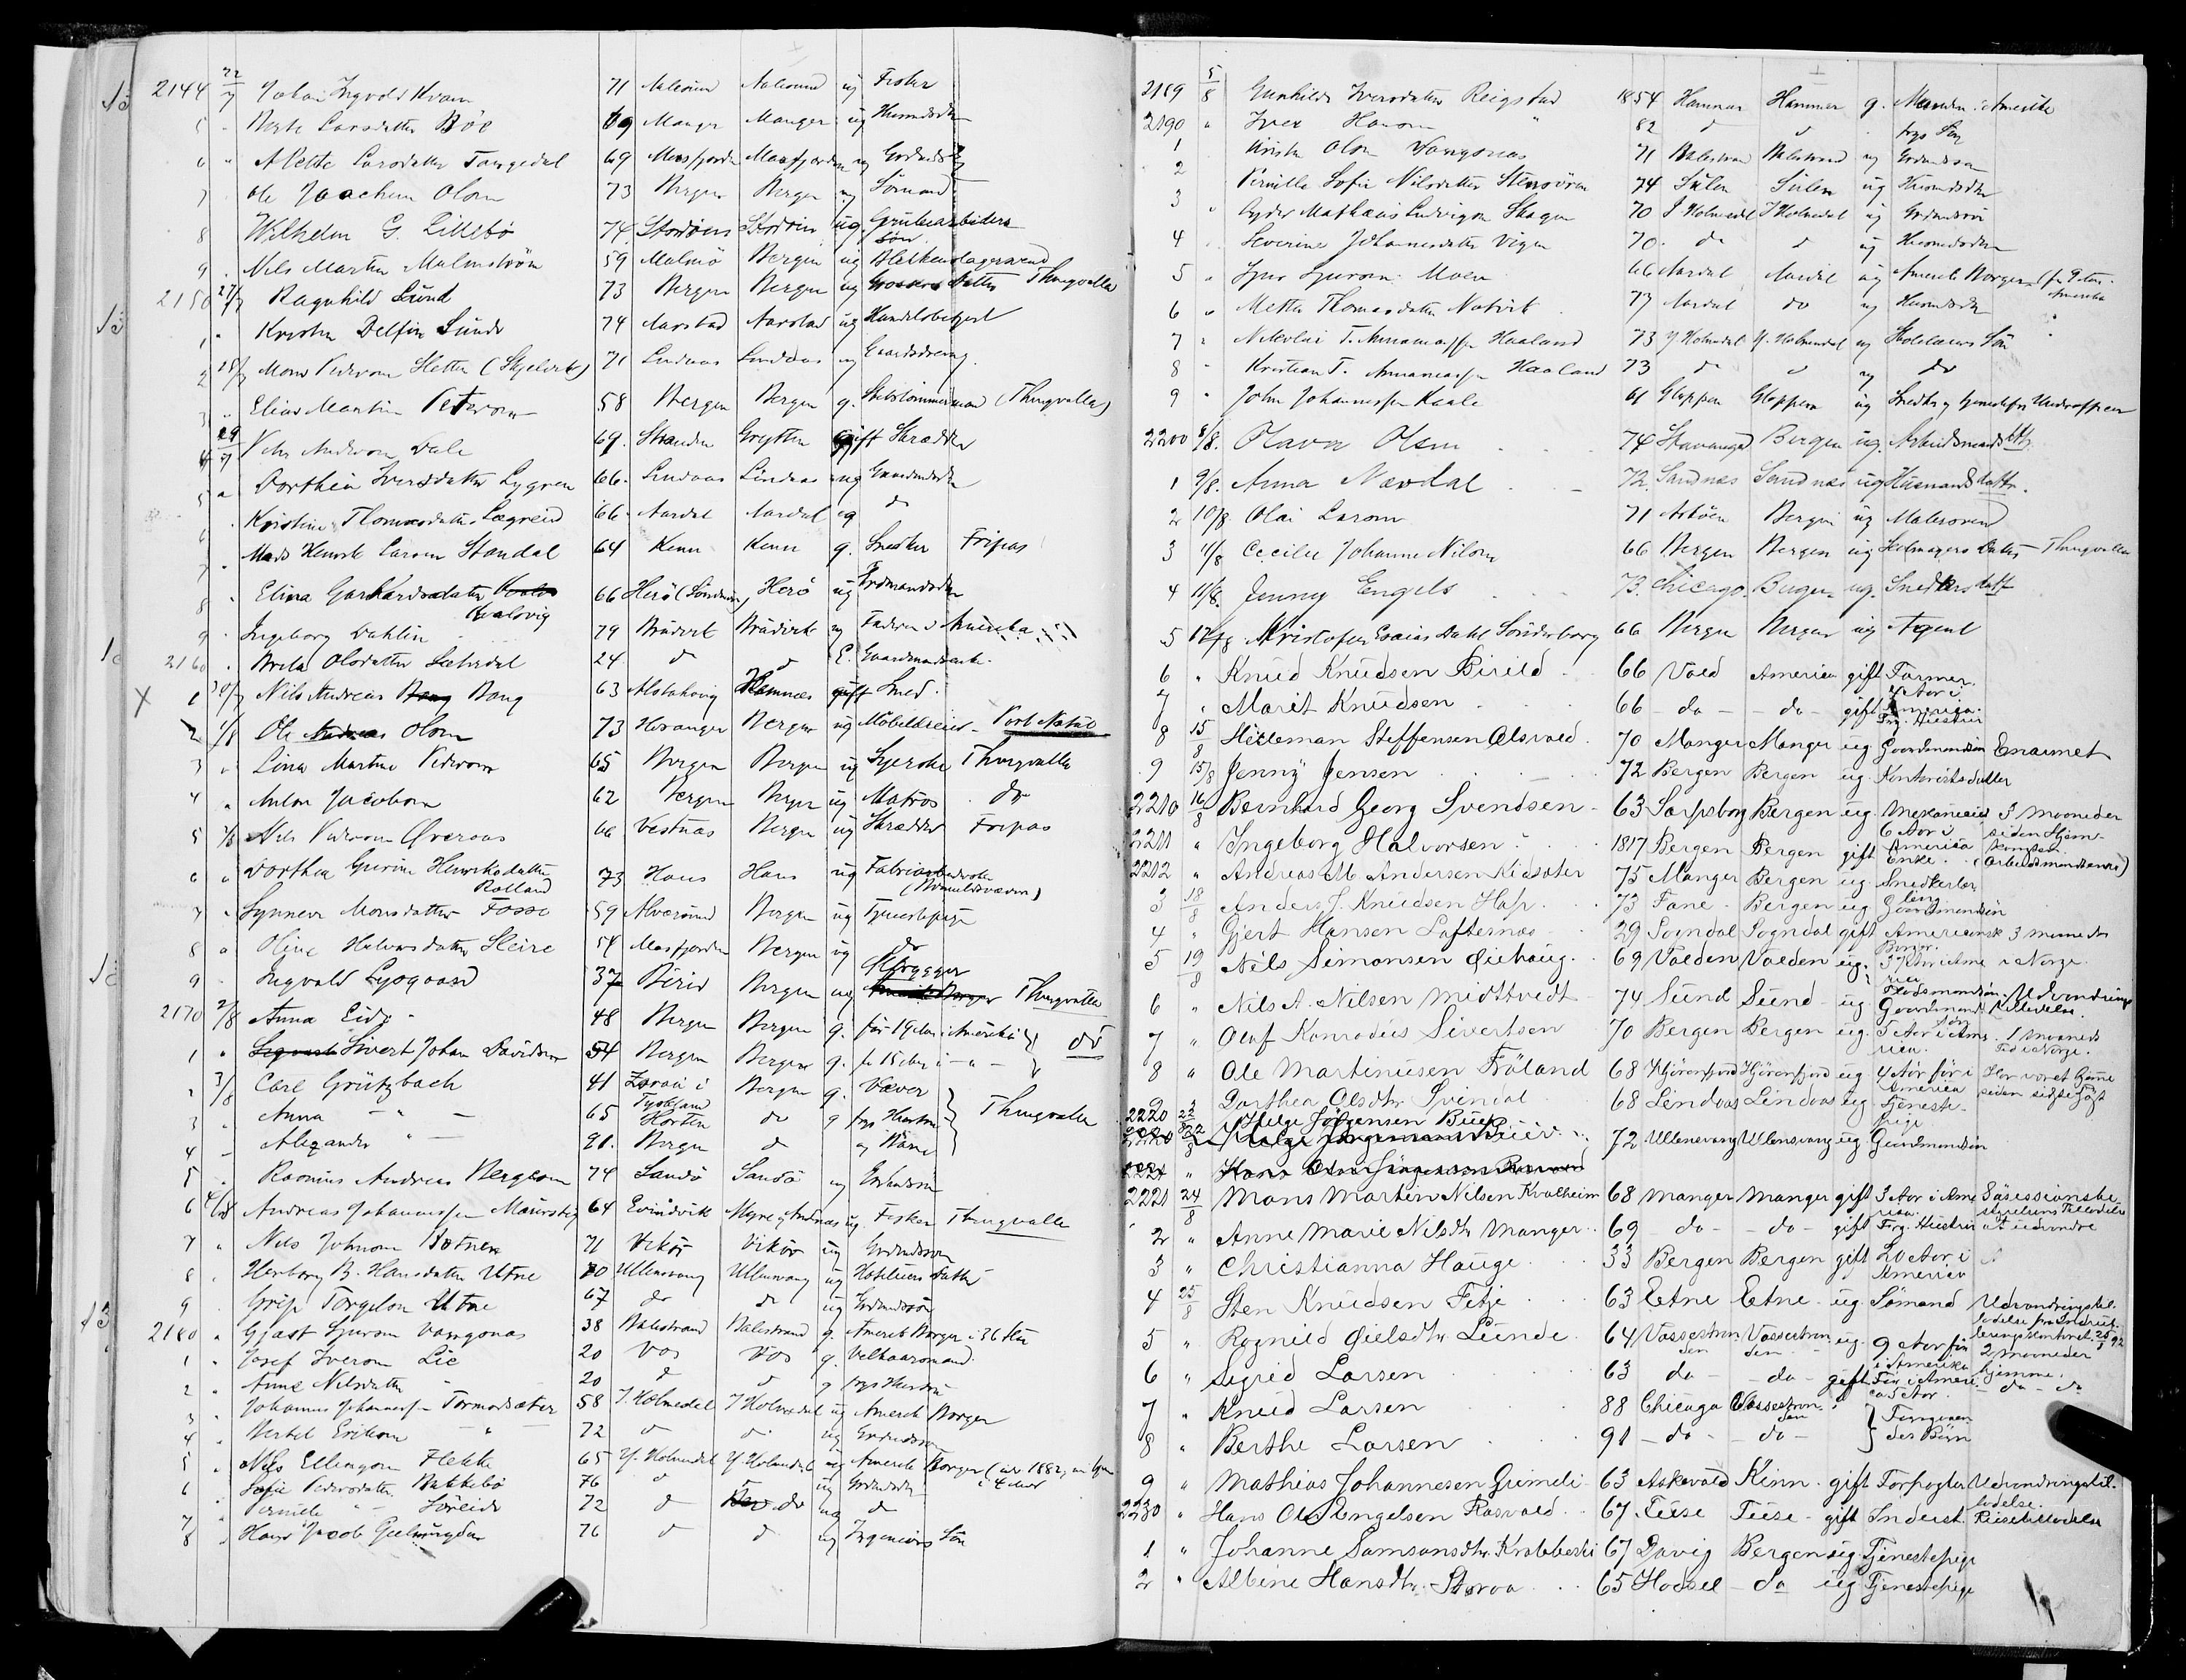 2144 22/7 Johan Ingvold Kvam 71 Aalesund Aalesund ug Fisker
5 " Berte Larsdatter Böe 69 Manger Manger ug Husmdsdtr
6 " Alette Larsdatter Tangedal 69 Masfjorden Masfjorden ug Grdmdsdtr
7 Ole Joachim Olsen 73 Bergen Bergen ug Sömand
8 Wilhelm G. Lillebö 74. Stordöen Stordöen ug. Grubearbeiders Sön
9 . Nils Martin Malmström 59 Malmö Bergen ug Blikkenslagersvend
2150 27/7 Ragnhild Lund 73 Bergen Bergen ug Datter Thingvalla
1 " Kristen Delfin Lund 74 Aarstad Aarstad ug Handelsbetjent
2 28/7 Mons Pederson Sletten (Skjelvik) 71 Lindaas Lindaas ug Gaardsdreng
3 " Elias Martin Peterson 58 Bergen Bergen g. Skibstömmermand (Thingvalla)
4 29/7 Pehr Anderson Dale 69. Stranden Grytten gift Skrædder
5 " Dorthea Iversdatter Lygren 66. Lindaas Lindaas ug Gaardmdsdtr
6 . Kristine Thomasdatter Lægreid 66 Aardal Aardal ug do
7 . Mads Henrik Larsen Standal 64 Kinn Kinn g. Snedker Fripas
8 " Elina Gerhardsdatter Kvalsvig 66 Herö (Söndmör) Herö ug Grdmandsdtr
9 . Ingeborg Dahlin 79 Brüdvik Brüdvik ug Faderen i Amerika
2160 . Brita Olsdatter Sætredal 24 d d E. Gaardmandsenke.
1 30/7 Nils Andreas Bang 63 Alstahoug Hemnæs gift Smed.
2 1/8 Ole Olsen 73 Havanger Bergen ug Möbelhandler Port Natal
3 " Lina Martine Pederson 65 Bergen Bergen ug Syerske Thingvalla
4 " Anton Jacobsen 62 Bergen Bergen ug Matros do
5 2/8 Nils Pederson Överaas 66 Vestnæs Bergen ug Skrædder Fripas
6 " Dorthea Gurine Henriksdatter Rolland 73 Haus Haus ug Fabrikarbeiderske (Bomuldsvæveri)
7 " Synneve Monsdatter Fosse 59 Alversund Bergen ug Tjenestepige
8 " Oline Halvorsdatter Sleire 54 Masfjorden Bergen ug do
9 . Ingvald Lysgaard 37 Birid Bergen ug Skrygger Thingvalla
2170 2/8 Anna Eide 48 Bergen Bergen g. för 19 Aar i Amerika
1 " Sivert Johan Davidson 54 Bergen Bergen g. för 15 Aar i - " - do
2 3/8 Carl Grützbach 41 Zorau i Tyskland Bergen g. Væver
3 . Anna - " - 65 Horten do g frgs Hustru Thingvalla
4 - Alexander " 91. Bergen d " Barn
5 . Rasmus Andreas Bergeson 74 Sandö Sandö ug Grdmdsön
6 4/8 Andreas Johannesen Maurstig 64 Evindvik Myre, Andnæs ug. Fisker Thingvalla
7 " Nils Johnson Botnen 71 Vikör Vikör ug Grdmdsson
8 , Herborg B. Hansdatter Utne 70 Ullensvang Ullensvang ug Hotelieres Datter
9 Grip Torgilson Utne 67 do do ug Grdmdssön
2180 " Gjøst Sjurson Vangsnæs 38 Balestrand Balestrand g. Amerik Borger i 36 Aar
1 " Josef Iverson Lie 20 Vos Vos g. Velhaarsmand
2 " Anne Nilsdatter " 20 d d g frgs Hustru
3 " Johannes Johannesen Tormodsæter 58 I. Holmedal I Holmedal ug Amerik Borger
4 " Bertel Erikson - " 72 d d ug Grdmdsson
5 " Nils Ellingson Flekke 65 Y. Holmedal Y Holmedal ug Amerik Borger (ud 1882, nu hjem i 4 Mdr
6 . Sofie Pedersdatter Bakkebö 76 d d ug Grdmdsdtr
7 " Pernille - " - Söreide 72 d do ug d
8 " Hans Jacob Geelmuyden 76 d d ug Ingeniörs Sön
2189 5/8 Gunhilde Iversdatter Reigstad 1854 Hammer Hammer g. Manden i Amerika
2190 " Iver Hanson " 82 d d . frgs Sön
1 Kristen Olsen Vangsnæs 71 Balestrand Balestrand ug Grdmdsson
2 Pernille Sofie Nilsdatter Stensören 74 Sulen Sulen ug Husmdsdtr
3 " Ludvigson Skagen 70 I Holmedal I Holmedal ug Grdmdsson
4 . Severine Johannesdatter Vigen 70. do d ug Husmdsdtr
5 " Sjur Sjurson Moen 66 Aardal Aardal ug Amerik Borger (för 9 Aar i Amerika
6 " Mette Thomasdatter Natvik 77 Aardal do ug Husmdsdtr
7 " Nikolai T. Annaniassen Haaland 73 Y Holmedal Y. Holmedal ug Skolelærers Sön
8 " Kristian T. Annaniassen Haaland 73 do d ug do
9 " John Johannesen Kaale 61 Gloppen Gloppen ug Snedker
2200 8/8. Olava Olsen 74 Stavanger Bergen ug. Arbeidsmands dtr
1 9/8. Anna Nævdal 72. Sandnæs Sandnæs ug Husmands datter.
2 10/8. Olai Larsen 71 Askøen Bergen ug Malersvend
3 11/8 Cecilie Johanne Nilsen 66 Bergen Bergen ug Seilmagers Datter - Thingvalla
4 11/8. Jenny Engels 73. Chicago Bergen ug. Snedkers datt
5 12/8 Kristofer Esaias Dahl Sönderborg 66 Bergen Bergen ug Agent
6 " Knud Knudsen Birild 66 Vold Amerika gift Farmer. 4 Aar i Amerika.
7 " Marit Knudsen 66 - do - - do - gift Frg. Hustru
8 15/8 Hilleman Steffensen Olsvold 70 Manger Manger ug Gaardmandsøn Enarmet
9 15/8 Jenny Jensen 72 Bergen Bergen ug. Kontoristsdatter
2210 16/8 Bernhard Georg Svendsen 63 Sarpsborg Bergen ug. Mekaniker 6 Aar i Amerika 3 maaneder siden Hjemkomsten.
2211 " Ingeborg Halvorsen 1817 Bergen Bergen gift Enke. (Arbeidsmandsenke)
2212 " Andreas M Andersen Kidsæter 75 Manger Bergen ug. Snedkerlærling
3 18/8 Anders J. Knudsen Hop 73 Fane Bergen ug Gaardmandsøn
4 " Gjert Hansen Loftesnæs 29 Sogndal Sogndal gift Amerikansk Borger. 3 Maaneder i Norge.
5 19/8 Nils Simonsen Øiehaug 69 Volden Volden ug. 3 Aar i Amerika
6 " Nils A. Nilsen Midttvedt 74 Sund Sund ug Gaardmands sön Udvandrings tilladelse.
7 " Olaf Konradius Sivertsen 70 Bergen Bergen ug. 5 Aar i Amerika. 1 Maaneds Tid i Norge.
8 " Ole Martinusen Fröland 68 Hjörenfjord Hjörenfjord ug 4 Aar för i Amerika Har været hjemme siden sidste Höst
9 " Dorthea Olsdtr Spindal 68 Lindaas Lindaas ug Tjenestepige
2220 22/8 Helge Jörgensen Bue 72 Ullensvang Ullensvang ug Gaardmandsön
2221 24/8 Mons Martin Nilsen Kvalheim 68 Manger Manger gift 3 Aar i Amerika. Sesessionsbestyrelsens Tilladelse at udvandre
2 " Anne Marie Nilsdtr Manger 69 - do - - do - gift Frg. Hustru
3 " Christianna Hauge 33 Bergen Bergen gift 20 Aar i Amerika
4 25/8 Sten Knudsen Fitje 63 Etne Etne ug. Sömand Udvandringstilladelse fra
5 " Ragnild Gielsdtr Lunde 64 Vossestranden Vossestranden ug. 9 Aar för i Amerika 2 Maaneder hjemme.
6 " Sigrid Larsen 63 do - - do - gift För i Amerika ca. 5 Aar. - do - do
7 " Knud Larsen 88 Chicago Vossestranden Foregaaendes Börn
8 " Berthe Larsen 91 - do - - do -
9 " Mathias Johannesen Grimeli 63 Askevold Kinn. gift Forpagter Udvandringstilladelse.
2230 " Hans Ole Engelsen Rosvold 67 Fuse Fuse gift Inderst. Reisetilladelse
1 " Johanne Samsonsdtr. Krabbeski 67 Davig Bergen ug Tjenestepige
2 " Albine Hansdtr. Storoa 65 Hadsel - do ug Tjenestepige